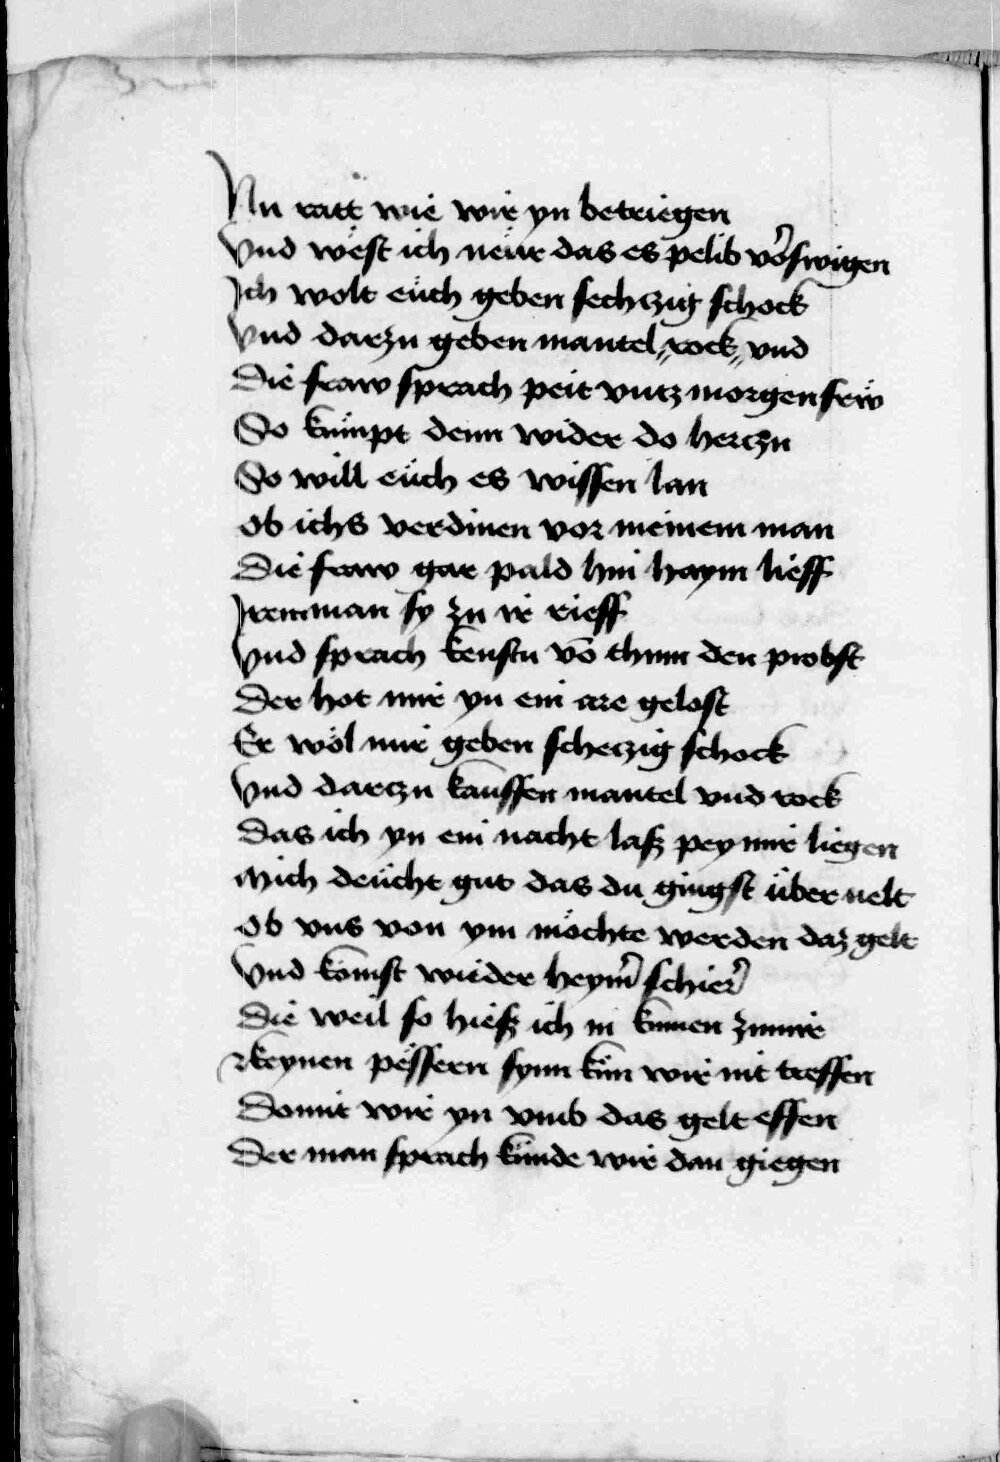 Nu ratt wie wir yn betriegen
Vnd west ich neür das es pelib v̄oswigen
Ich wolt eüch geben sechzig schock
Vnd darzu geben mantel„rock„vnd
Die fraw sprach peit vntz morgen frw̎
So kümpt denn wider do herczu
So will eüch es wissen lan
ob ichs verdinen vor meinem man
Die fraw gar pald hin haym lieff
Irem man sy zu ir rieff
Vnd sprach kenstu vō thum den probst
Der hot mir yn ein are gelost
Er wöl mir geben scheczig schock
Vnd darczu kauffen mantel vnd rock
Das ich yn ein nacht lasz pey mir liegen
Mich deücht gut das du gingst über velt
Ob vns von ym möchte werden daz gelt
Vnd komst wieder heym̄ schier
Die weil so hiesz ich in kumen zu mir
Keynen pessern synn kün wir nit treffen
Domit wir yn vmb das gelt effen
Der man sprach künde wir dan giegen